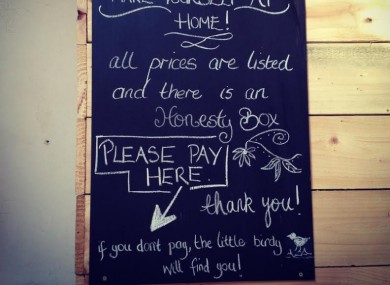 MAKE YOURSELF AT
HOME!
all prices are listed
and there is an
Honesty Box
PLEASE PAY
HERE.
thank you!
if you dont pay, the little birdy
will find you!